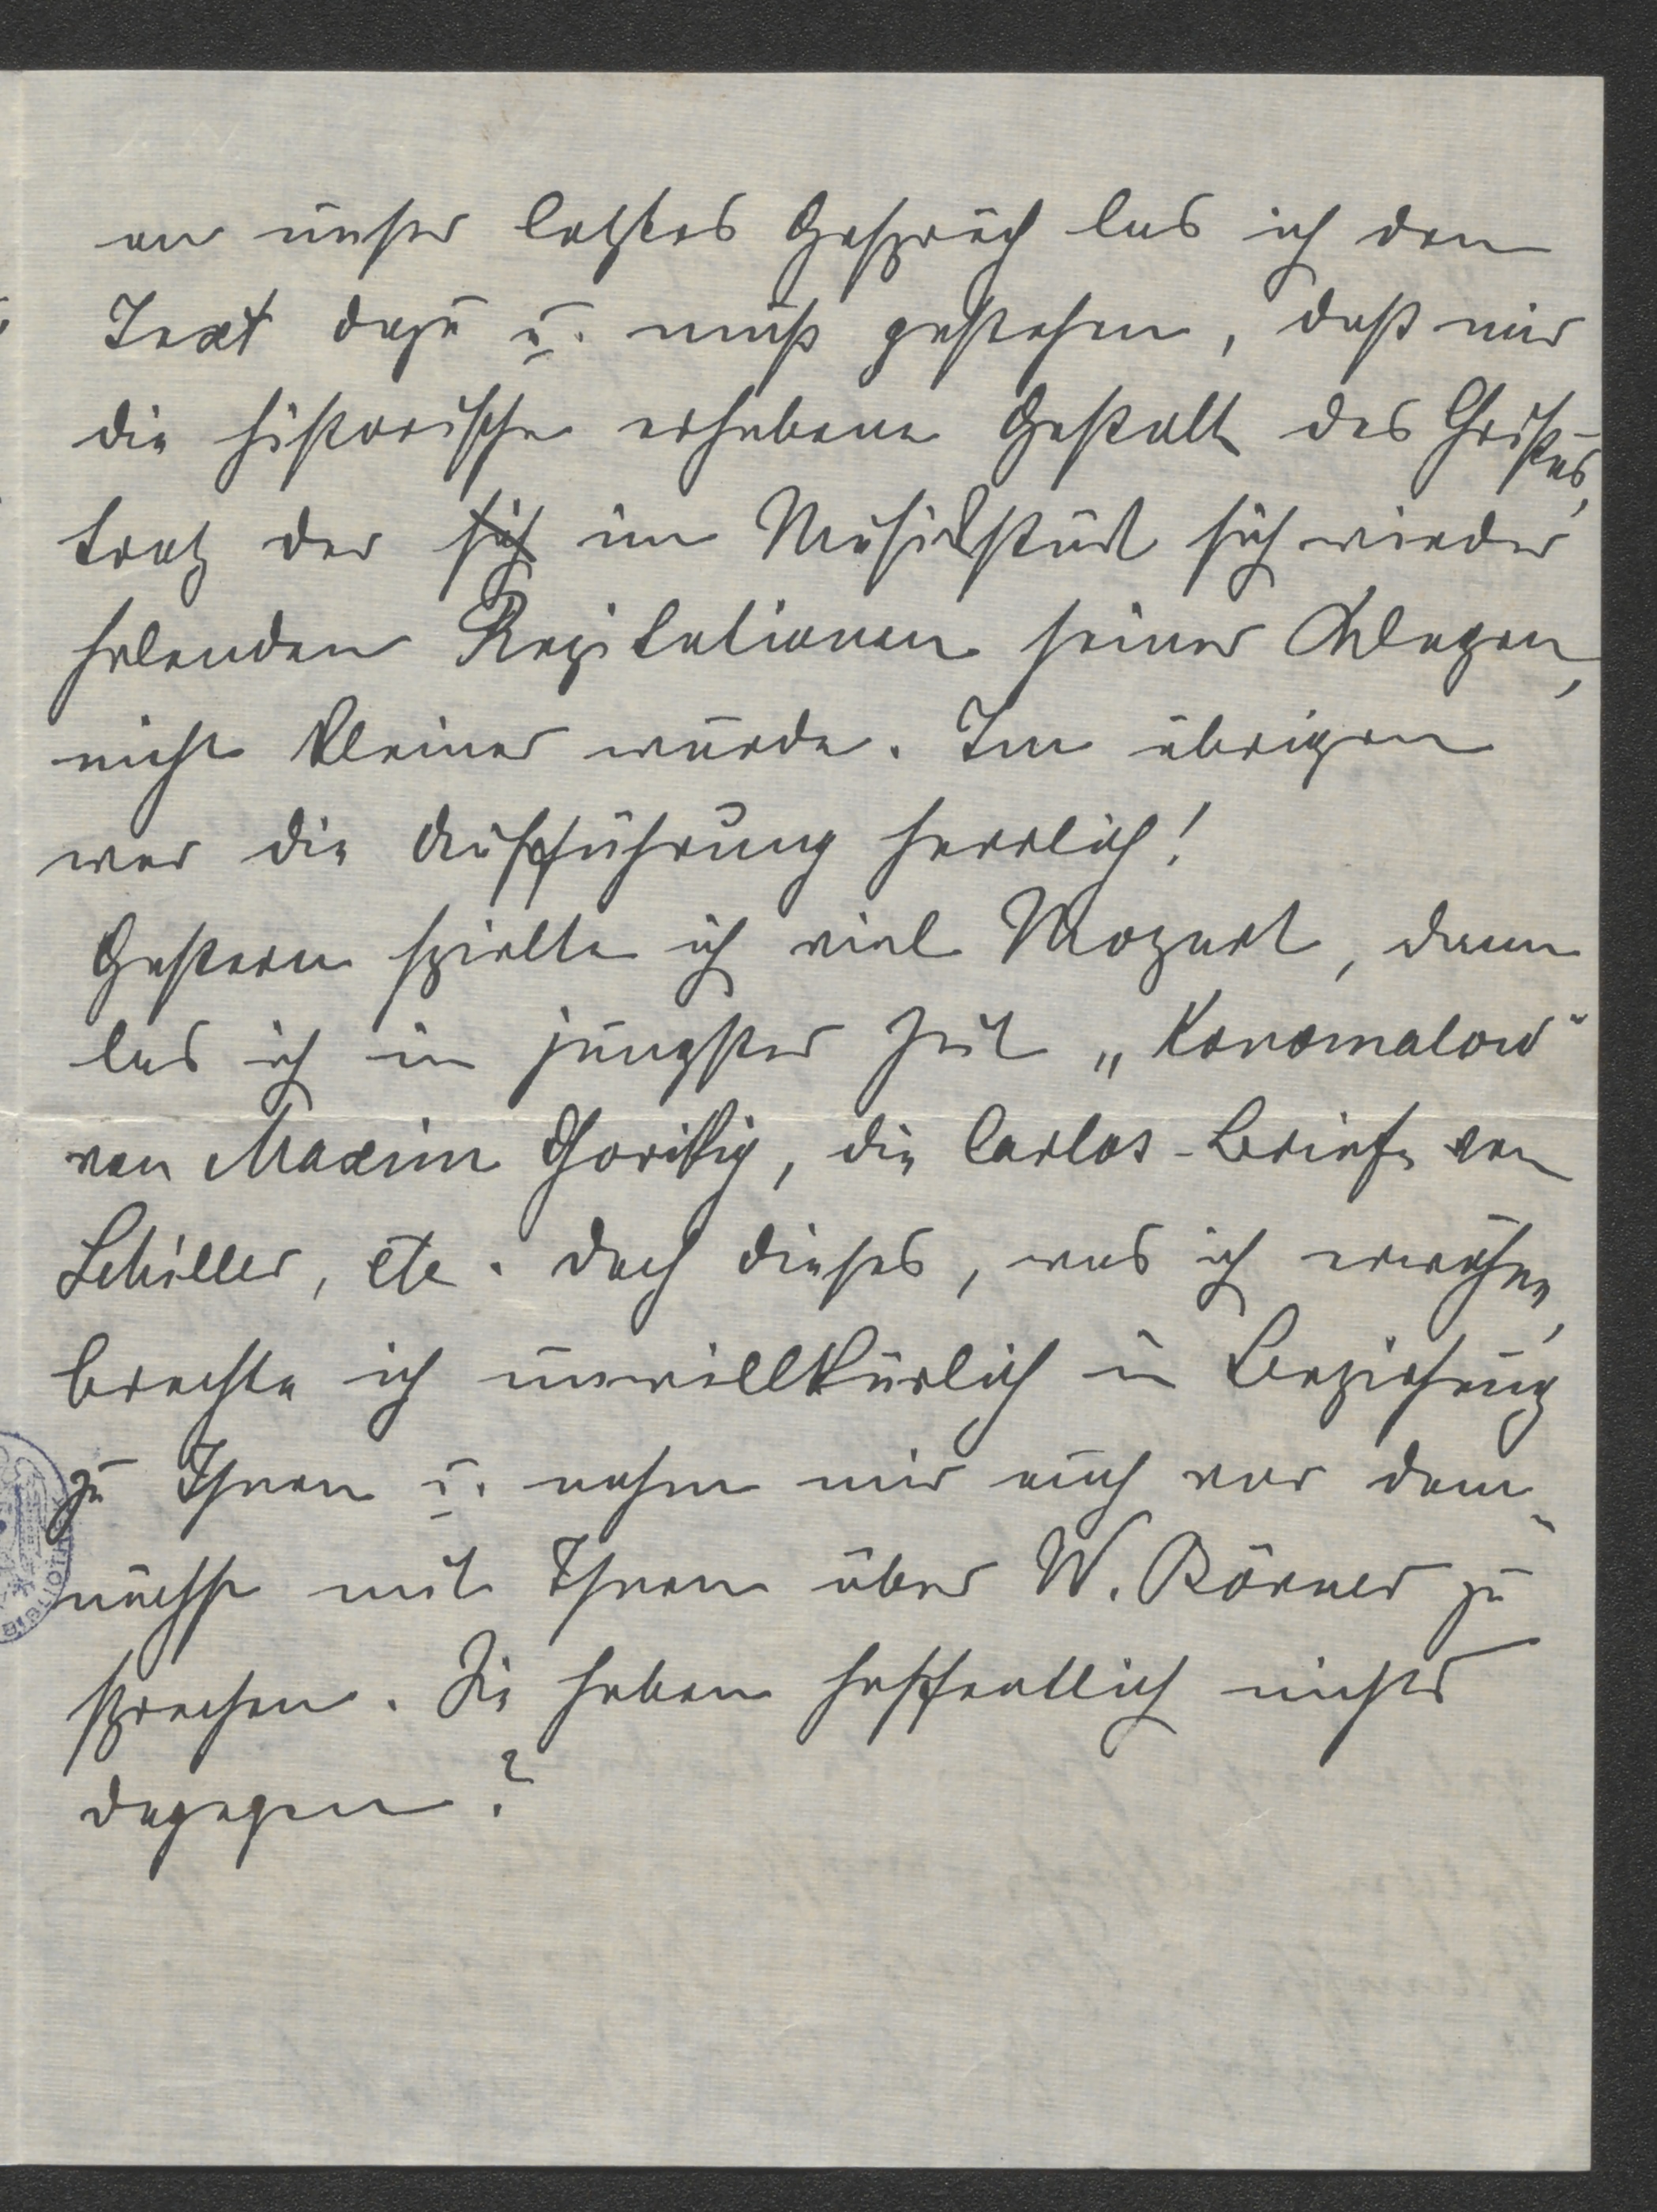 an unser letztes Gespräch las ich den
Text dazu u. muß gestehen, daß mir
die historische erhabene Gestalt des Christus,
trotz der sich im Musikstück sich wieder
holenden Rezitationen seiner Klagen,
nicht kleiner wurde. Im übrigen
war die Aufführung herrlich!
Gestern spielte ich viel Mozart, dann
las ich in jüngster Zeit „Konomalow“
von Maxim Gorikig, die Carlos-Briefe von
Schiller, etc. Doch dieses, was ich erwähne,
brachte ich unwillkürlich in Beziehung
zu Ihnen u. nahm mir auch vor dem-
nächst mit Ihnen über W. Börner zu
sprechen. Sie haben hoffentlich nichts
dagegen?